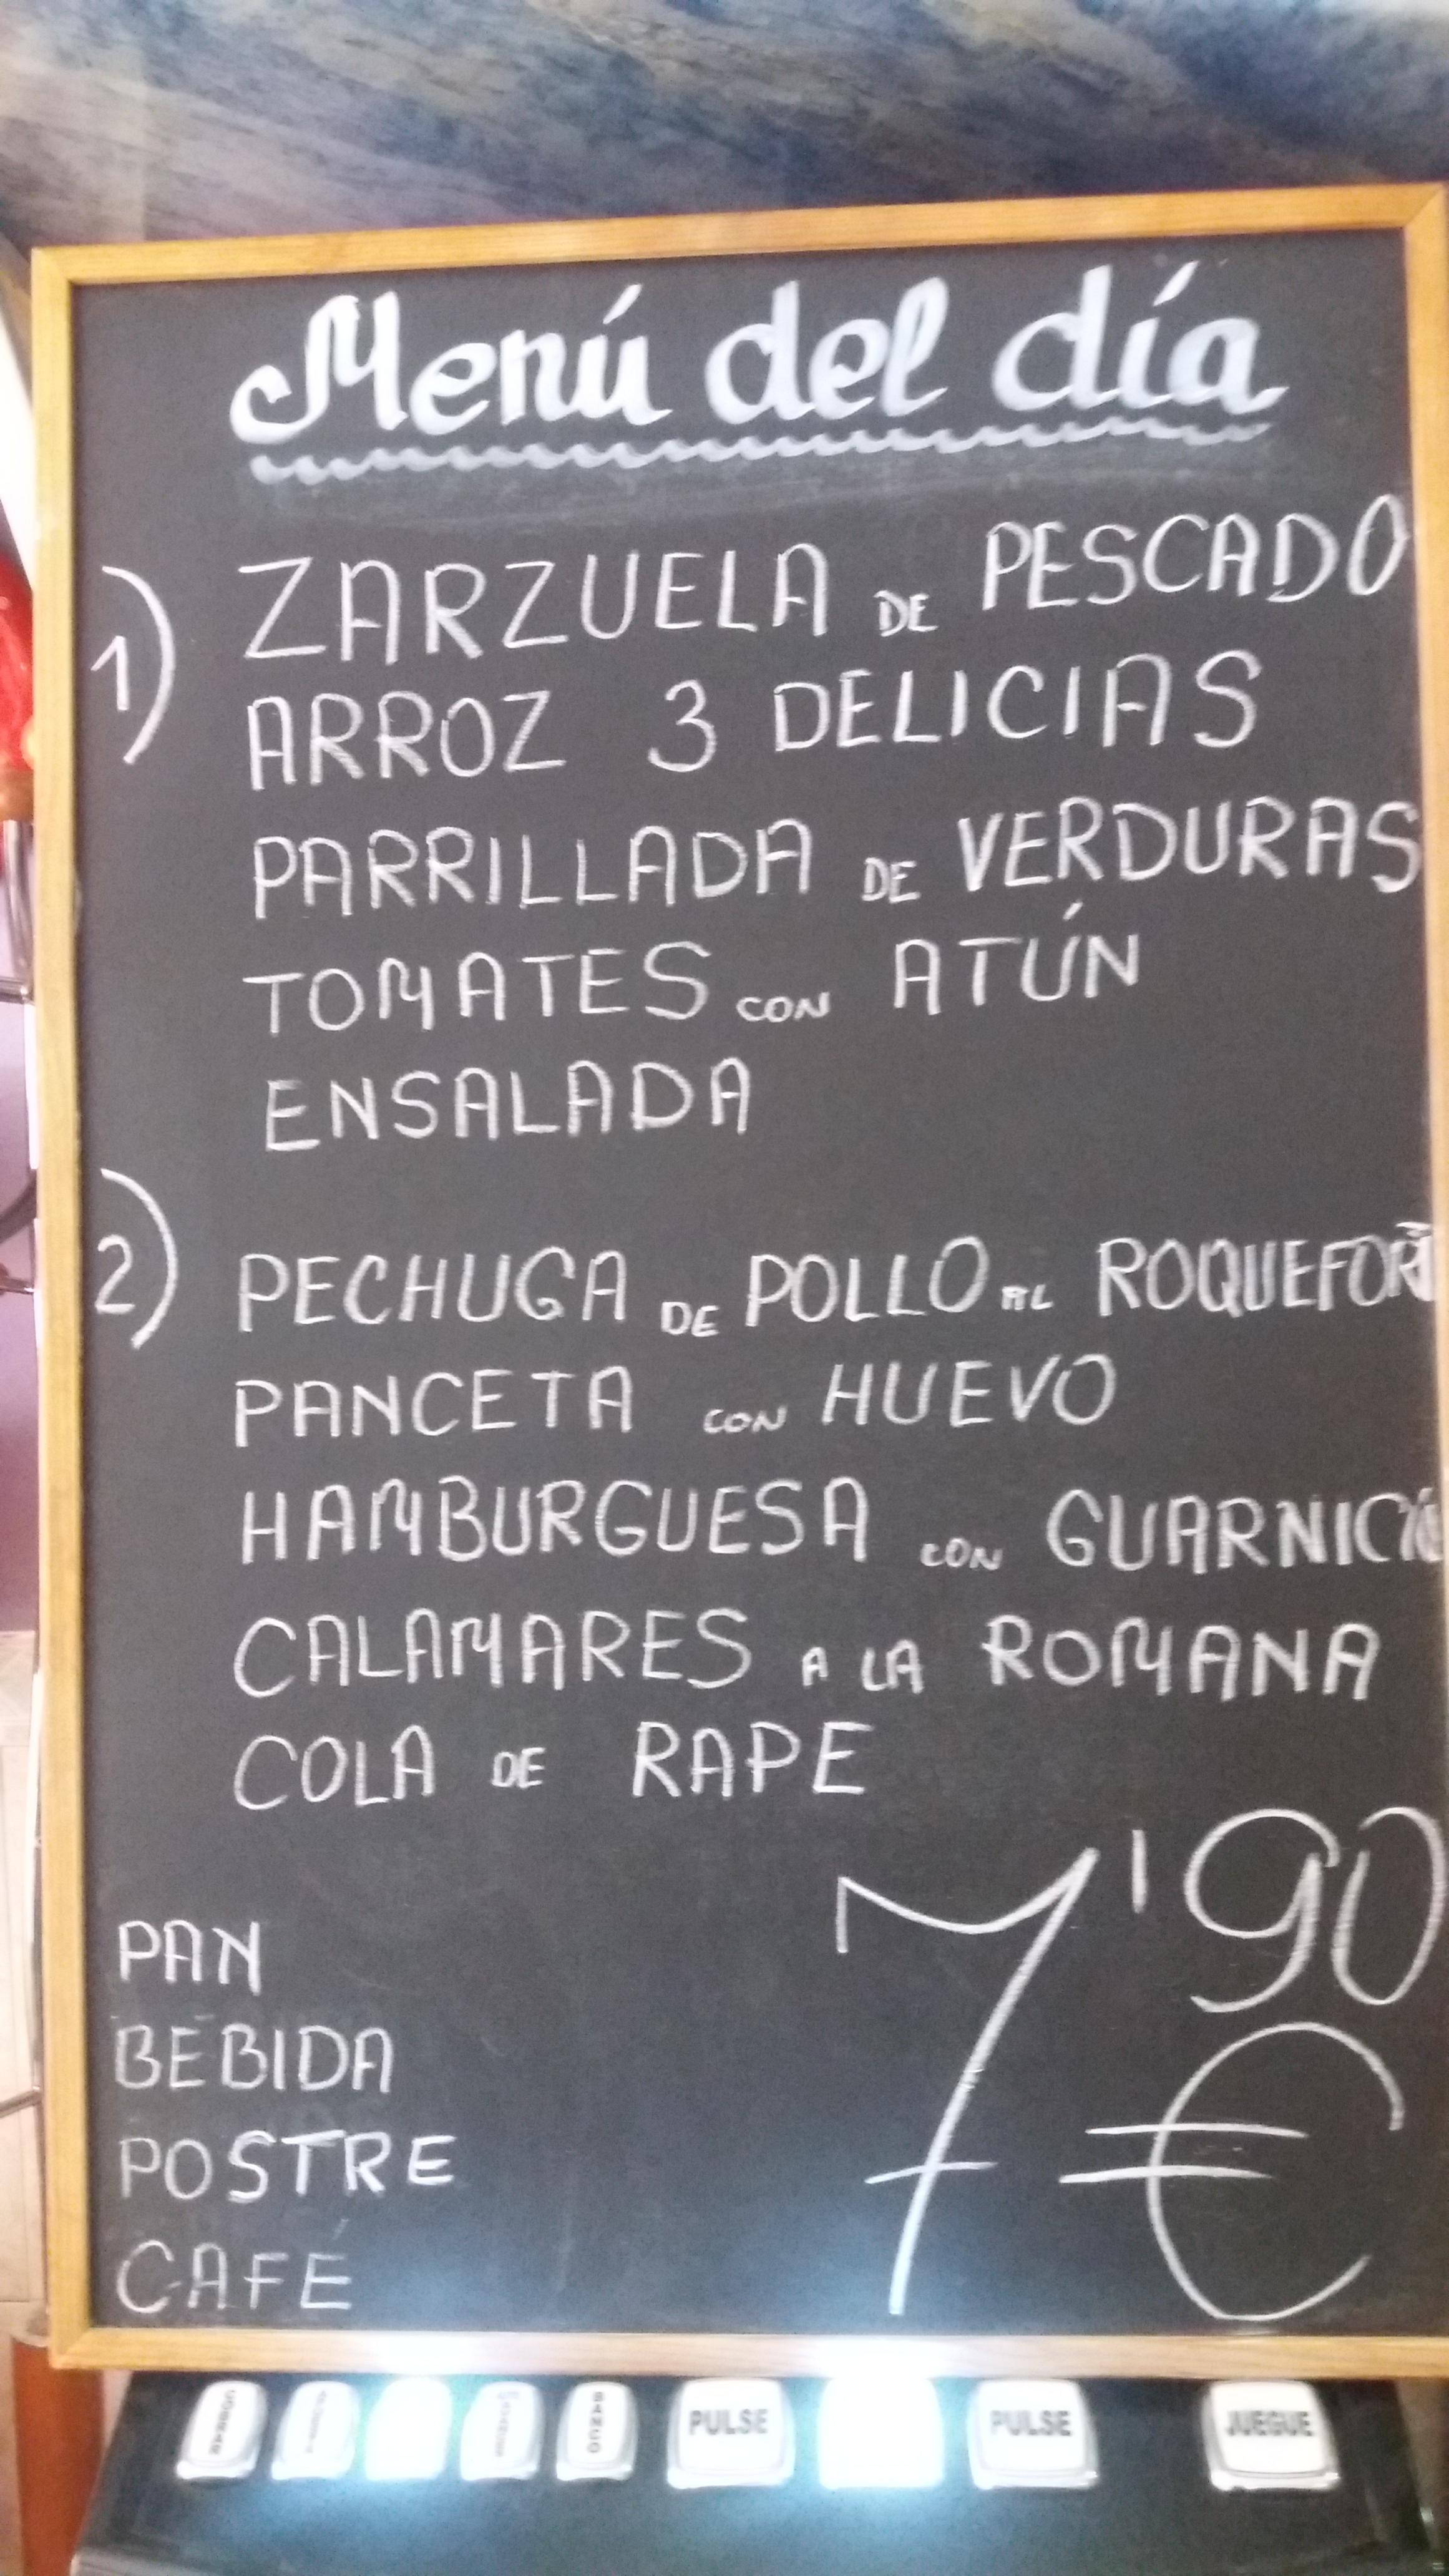 Menú del día
1) ZARZUELA DE PESCADO
ARROZ 3 DELICIAS
PARRILLADA DE VERDURAS
TOMATES CON ATÚN
ENSALADA
2) PECHUGA DE POLLO AL ROQUEFORT
PANCETA CON HUEVO
HAMBURGUESA CON GUARNICIÓN
CALAMARES A LA ROMANA
COLA DE RAPE
7'90
€
PAN
BEBIDA
POSTRE
CAFÉ
COBRAR
BANCO
PULSE
PULSE
JUEGUE